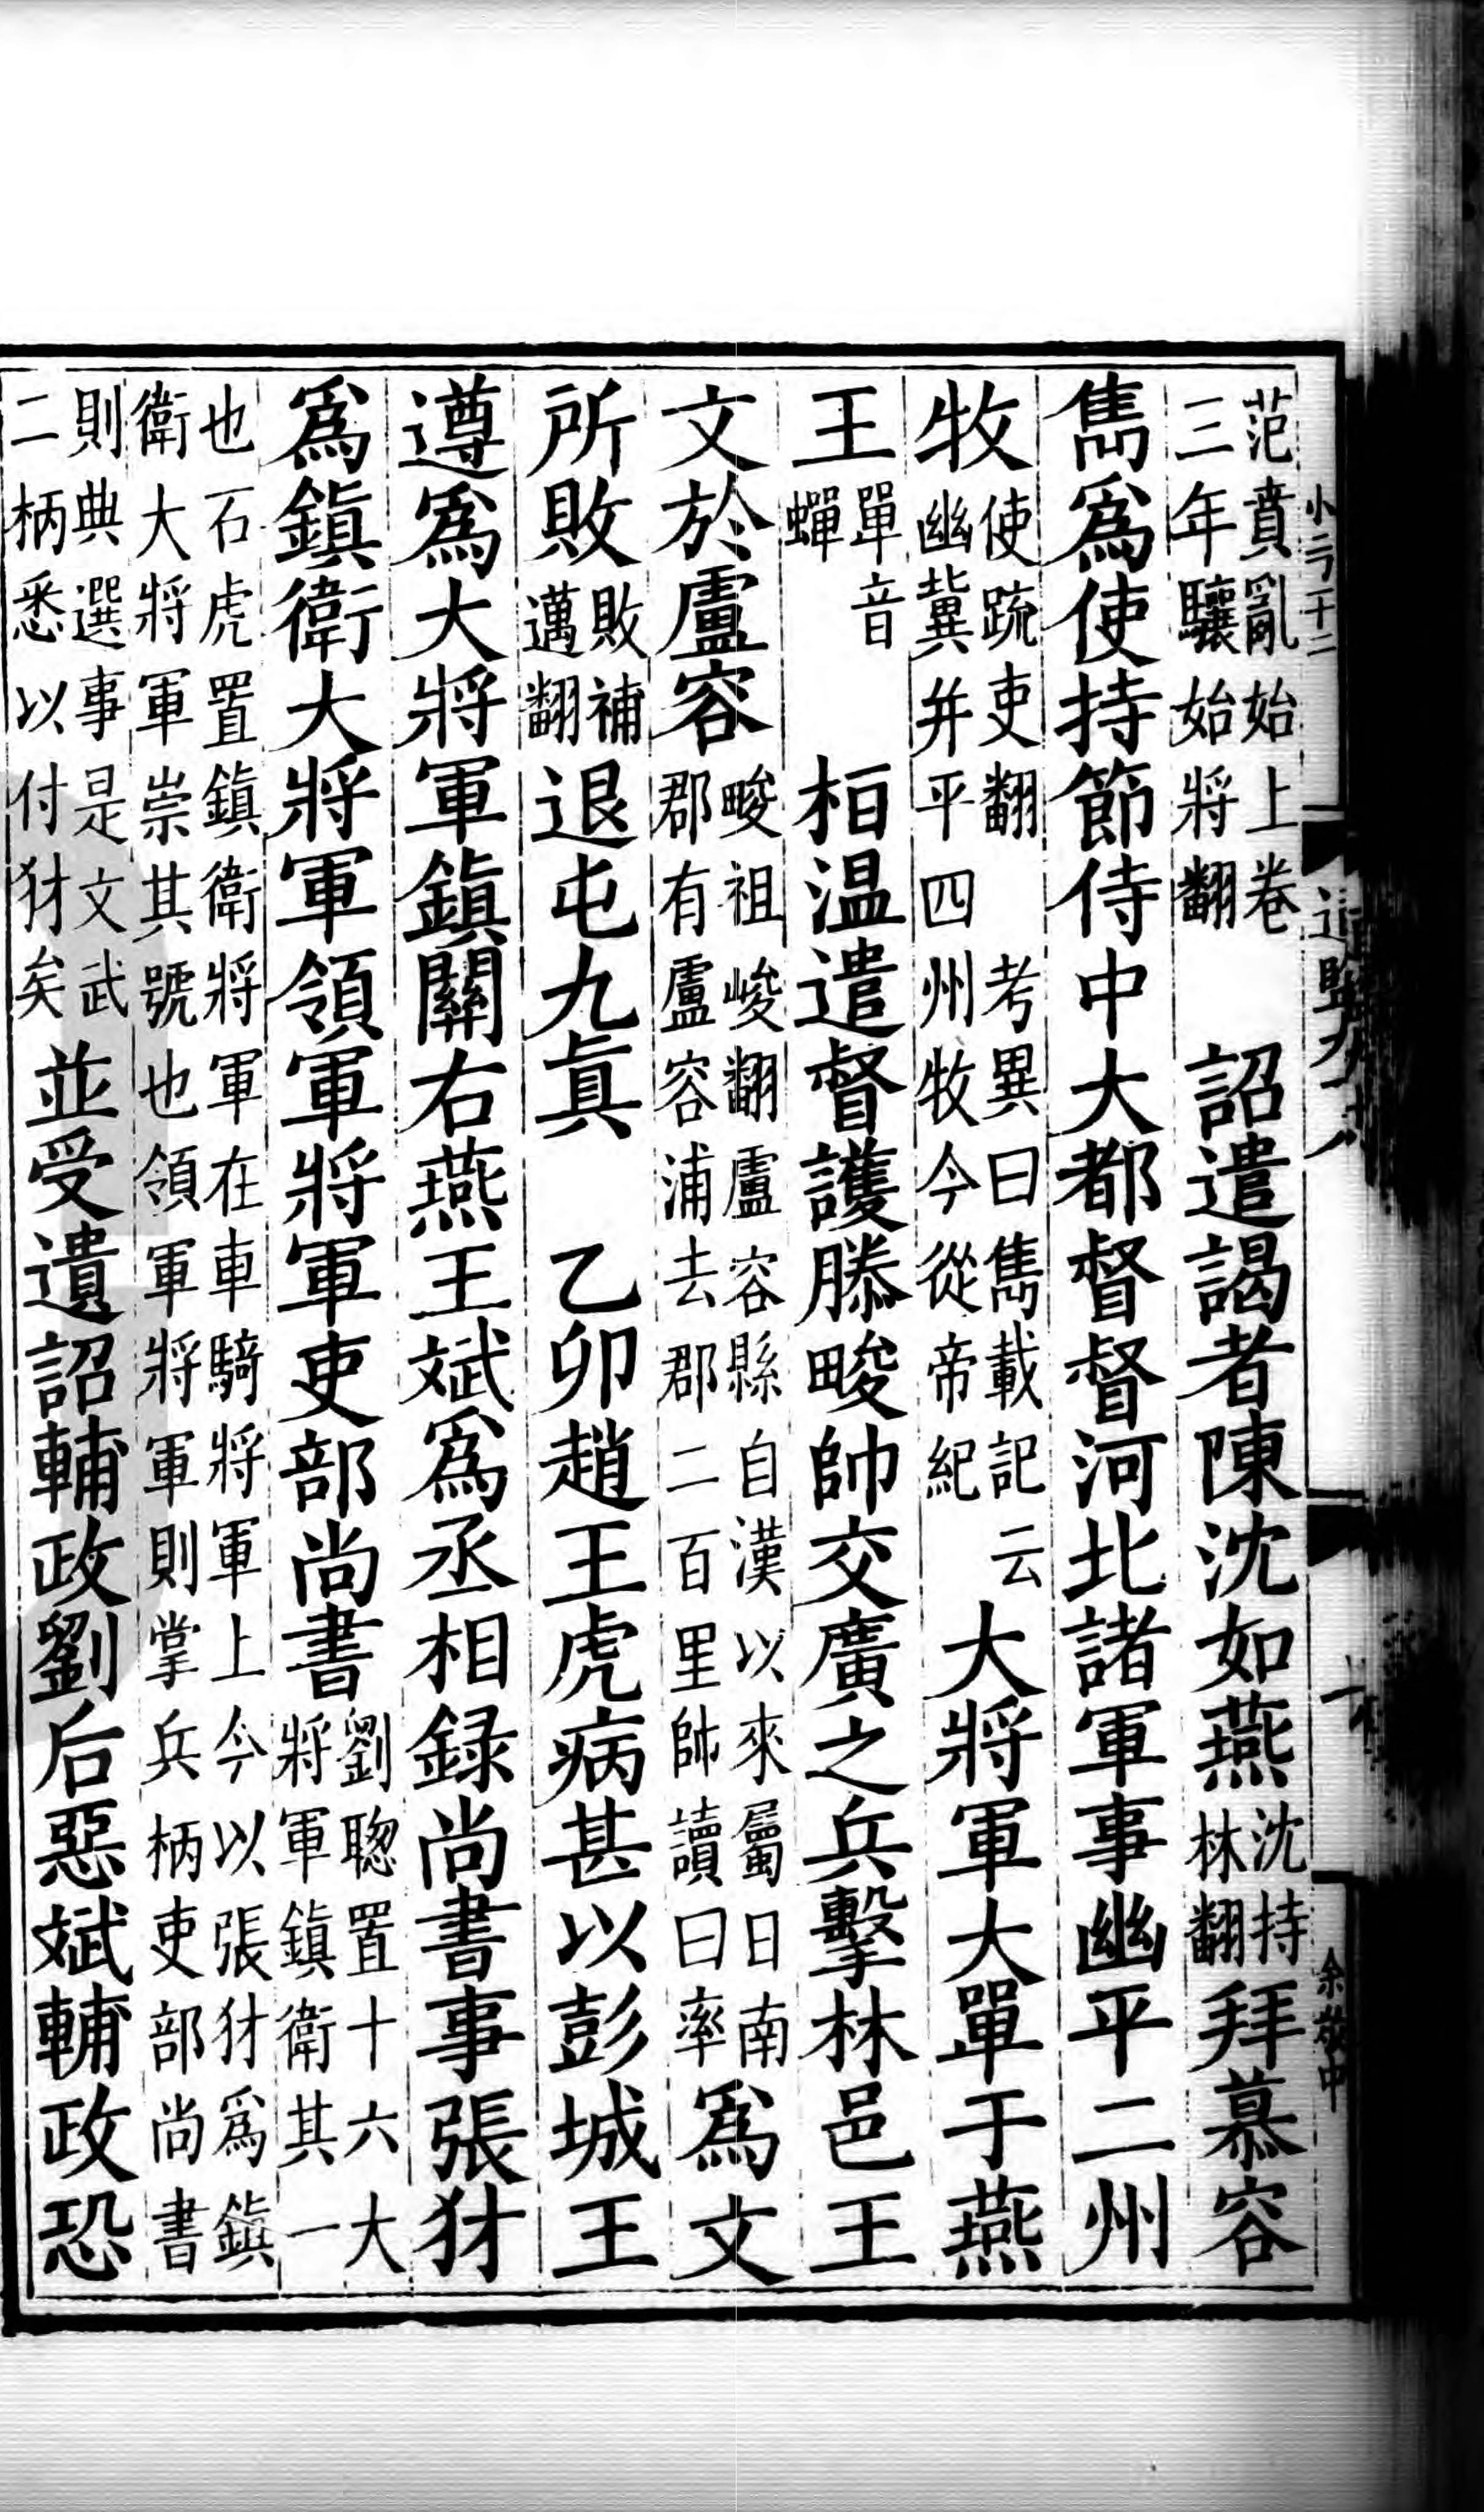 范賁亂始上卷三年驤始將翻詔遣謁者陳沈如燕沈持林翻拜慕容
雋爲使持節侍中大都督督河北諸軍事幽平二州
牧使䟽吏翻幽冀并平四州牧今從帝紀考異曰雋載記云大將軍大單于燕
王單音蟬桓温遣督護滕畯帥交廣之兵擊林邑王
文於盧容畯祖峻翻盧容縣自漢以來屬日南郡有盧容浦去郡二百里帥讀曰率爲文
所敗敗補邁翻退屯九眞乙卯趙王虎病甚以彭城王
遵爲大將軍鎮關右燕王斌爲丞相録尚書事張豺
爲鎮衛大將軍領軍將軍吏部尚書劉聦置十六大將軍鎮衛其一
也石虎置鎮衛將軍在車騎將軍上今以張豺爲鎮衛大將軍崇其號也領軍將軍則掌兵柄吏部尚書
則典選事是文武二柄悉以付豺矣並受遺詔輔政劉后惡斌輔政恐